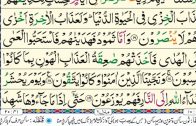 الْخِزْيِ فِي الْحَيٰوةِ الدُّنْيَا ؕ وَلَعَذَابُ الْاٰخِرَةِ اَخْزٰى
يُنْصَرُوْنَ ۝ وَاَمَّا ثَمُوْدُ فَهَدَيْنٰهُمْ فَاسْتَحَبُّوا الْعَمٰى
الْهُدٰى فَاَخَذَتْهُمْ صٰعِقَةُ الْعَذَابِ الْهُوْنِ بِمَا كَانُوْا
وَنَجَّيْنَا الَّذِيْنَ اٰمَنُوْا وَكَانُوْا يَتَّقُوْنَ ۝ وَيَوْمَ يُحْشَرُ
اللّٰهِ اِلَى النَّارِ فَهُمْ يُوْزَعُوْنَ ۝ حَتّٰۤى اِذَا مَا جَآءُوْهَا